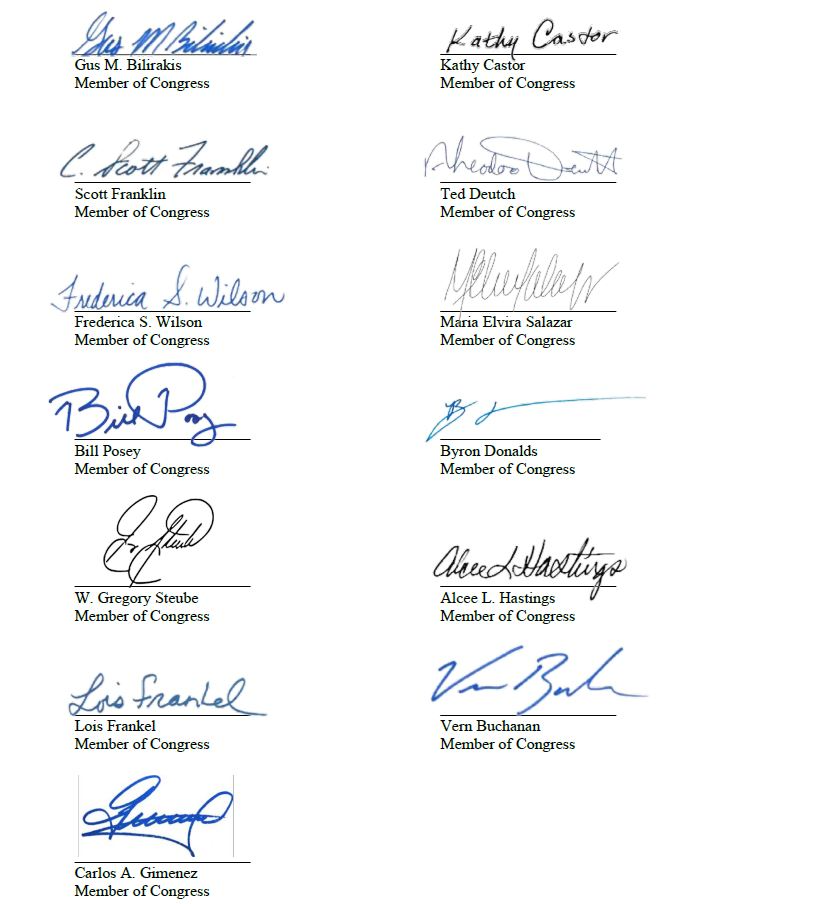 Gus M Bilirakis
Gus M. Bilirakis
Member of Congress
Kathy Castor
Kathy Castor
Member of Congress
C. Scott Franklin
Scott Franklin
Member of Congress
Theodore Deutch
Ted Deutch
Member of Congress
Frederica S. Wilson
Frederica S. Wilson
Member of Congress
Maria Elvira Salazar
Member of Congress
Bill Posey
Bill Posey
Member of Congress
Byron Donalds
Member of Congress
W. Gregory Steube
Member of Congress
Alcee L Hastings
Alcee L. Hastings
Member of Congress
Lois Frankel
Lois Frankel
Member of Congress
Vern Buchanan
Member of Congress
Carlos A. Gimenez
Member of Congress